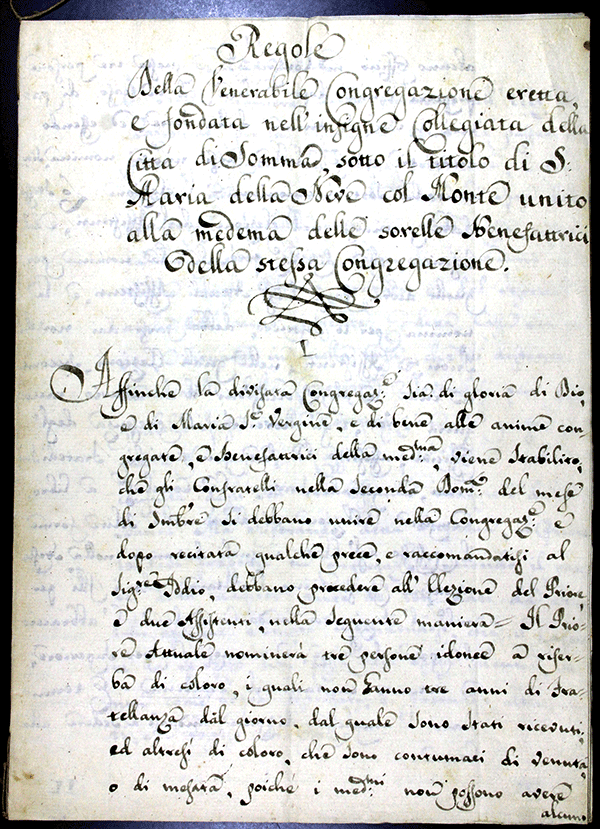 Regole
Della Venerabile Congregazione eretta,
e fondata nell'insigne Collegiata della
Città di Somma, sotto il titolo di S.
Maria della Neve col Monte unito
alla medema delle sorelle Benefattrici
della stessa Congregazione.
I
Affinche la divisata Congregaz.e sia di gloria di Dio,
e di Maria S.a Vergine, e di bene alle anime con-
gregate, e Benefatrici della med.ma, viene stabilito,
che gli Confratelli nella seconda Dom.ca del mese
di  si debbano unire nella Congregaz.e e
dopo recitata qualche prece, e raccomandatisi al
Sig.re Iddio, debbano procedere all'Elezione del Priore
e due Assistenti, nella seguente maniera= Il Prio-
re Attuale nominerà tre persone idonee a riser-
va di coloro, i quali non hanno tre anni di Fra-
tellanza dal giorno, dal quale sono stati ricevuti,
ed altresì di coloro, che sono contumaci di venuta,
o di mesata, poiche i med.mi non possono avere
alcuno